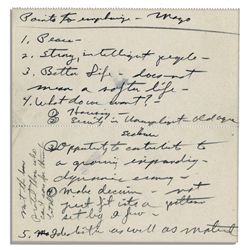 Points to emphasize - Mayo
1. Peace -
2. Strong, intelligent people -
3. Better Life - does not
mean a softer life -
4. What do we want?
① Housing
② Security in Unemployment Old age
Sickness
③ Opportunity to contribute to
a growing, expanding
dynamic economy -
④ Make decisions - not
just fit into a pattern
set by a few -
5. as well as material